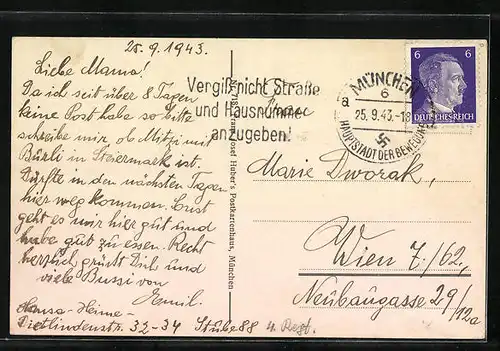 25.9.1943.
Liebe Mama!
Da ich seit über 8 Tagen
keine Post habe so bitte
schreibe mir, ob Mitzi mit
Burli in Steiermark ist.
Dürfte in den nächsten Tagen
hier weg kommen. Sonst
geht es mir hier gut und
habe gut zu essen. Recht
herzlich grüsst Dich und
viele Bussi von
Emil.
Hansa-Heime-
Dietlindenstr. 32-34 Stube 88 4. Rest.
Josef Huber's Postkartenhaus, München
Vergiß nicht Straße
und Hausnummer
anzugeben!
MÜNCHEN
6
a
25.9.43.-18
HAUPTSTADT DER BEWEGUNG
6 6
DEUTSCHES REICH
Frau
Marie Dworak,
Wien 7./62,
Neubaugasse 29/12a